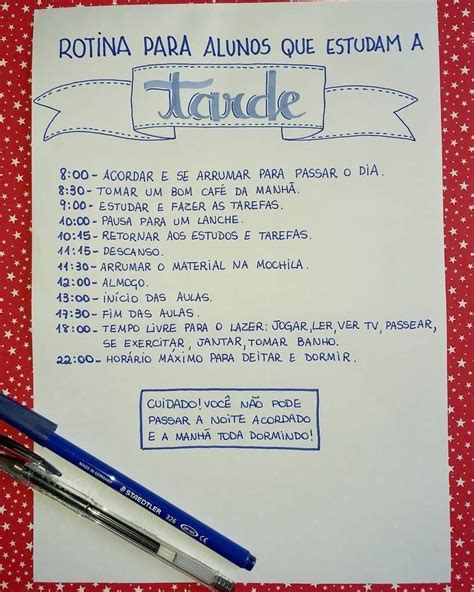 ROTINA PARA ALUNOS QUE ESTUDAM A
tarde
8:00- ACORDAR E SE ARRUMAR PARA PASSAR O DIA.
8:30- TOMAR UM BOM CAFÉ DA MANHÃ.
9:00- ESTUDAR E FAZER AS TAREFAS.
10:00- PAUSA PARA UM LANCHE.
10:15- RETORNAR AOS ESTUDOS E TAREFAS.
11:15- DESCANSO.
11:30- ARRUMAR O MATERIAL NA MOCHILA.
12:00- ALMOÇO.
13:00- INÍCIO DAS AULAS.
17:30- FIM DAS AULAS.
18:00- TEMPO LIVRE PARA O LAZER: JOGAR, LER, VER TV, PASSEAR,
SE EXERCITAR, JANTAR, TOMAR BANHO.
22:00- HORÁRIO MÁXIMO PARA DEITAR E DORMIR.
CUIDADO! VOCÊ NÃO PODE
PASSAR A NOITE ACORDADO
E A MANHÃ TODA DORMINDO!
MADE IN GERMANY
STAEDTLER 326 CE